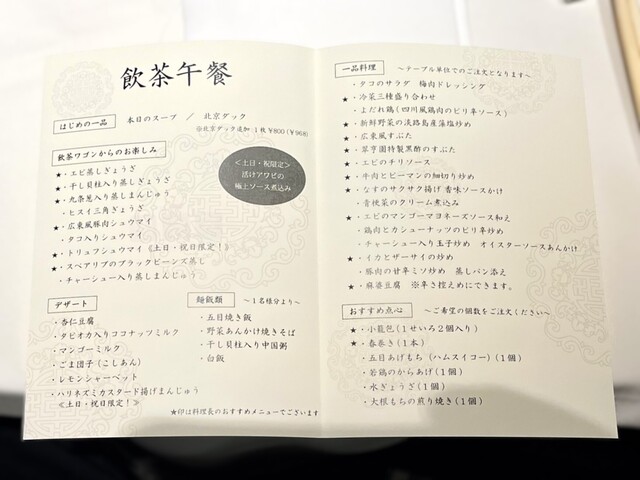 飲茶午餐
はじめの一品 本日のスープ / 北京ダック
※北京ダック追加 1枚¥800(¥968)
飲茶ワゴンからのお楽しみ
★・エビ蒸しぎょうざ
★・干し貝柱入り蒸しぎょうざ
★・九条葱入り蒸しまんじゅう
・ヒスイ三角ぎょうざ
★・広東風豚肉シュウマイ
・タコ入りシュウマイ
★・トリュフシュウマイ《土日・祝日限定!》
★・スペアリブのブラックビーンズ蒸し
・チャーシュー入り蒸しまんじゅう
<土日・祝限定>
活けアワビの
極上ソース煮込み
デザート
・杏仁豆腐
・タピオカ入りココナッツミルク
・マンゴーミルク
・ごま団子(こしあん)
・レモンシャーベット
・ハリネズミカスタード揚げまんじゅう
《土日・祝日限定!》
麺飯類 ~1名様分より~
・五目焼き飯
・野菜あんかけ焼きそば
・干し貝柱入り中国粥
・白飯
★印は料理長のおすすめメニューでございます
一品料理 ~テーブル単位でのご注文となります~
・タコのサラダ 梅肉ドレッシング
★・冷菜三種盛り合わせ
・よだれ鶏(四川風鶏肉のピリ辛ソース)
★・新鮮野菜の淡路島産藻塩炒め
★・広東風すぶた
★・翠亨園特製黒酢のすぶた
★・エビのチリソース
★・牛肉とピーマンの細切り炒め
★・なすのサクサク揚げ 香味ソースかけ
・青梗菜のクリーム煮込み
★・エビのマンゴーマヨネーズソース和え
・鶏肉とカシューナッツのピリ辛炒め
・チャーシュー入り玉子炒め オイスターソースあんかけ
★・イカとザーサイの炒め
・豚肉の甘辛ミソ炒め 蒸しパン添え
★・麻婆豆腐 ※辛さ控えめにできます。
おすすめ点心 ~ご希望の個数をご注文ください~
★・小籠包(1せいろ2個入り)
★・春巻き(1本)
・五目あげもち(ハムスイコー)(1個)
・若鶏のからあげ(1個)
・水ぎょうざ(1個)
・大根もちの煎り焼き(1個)